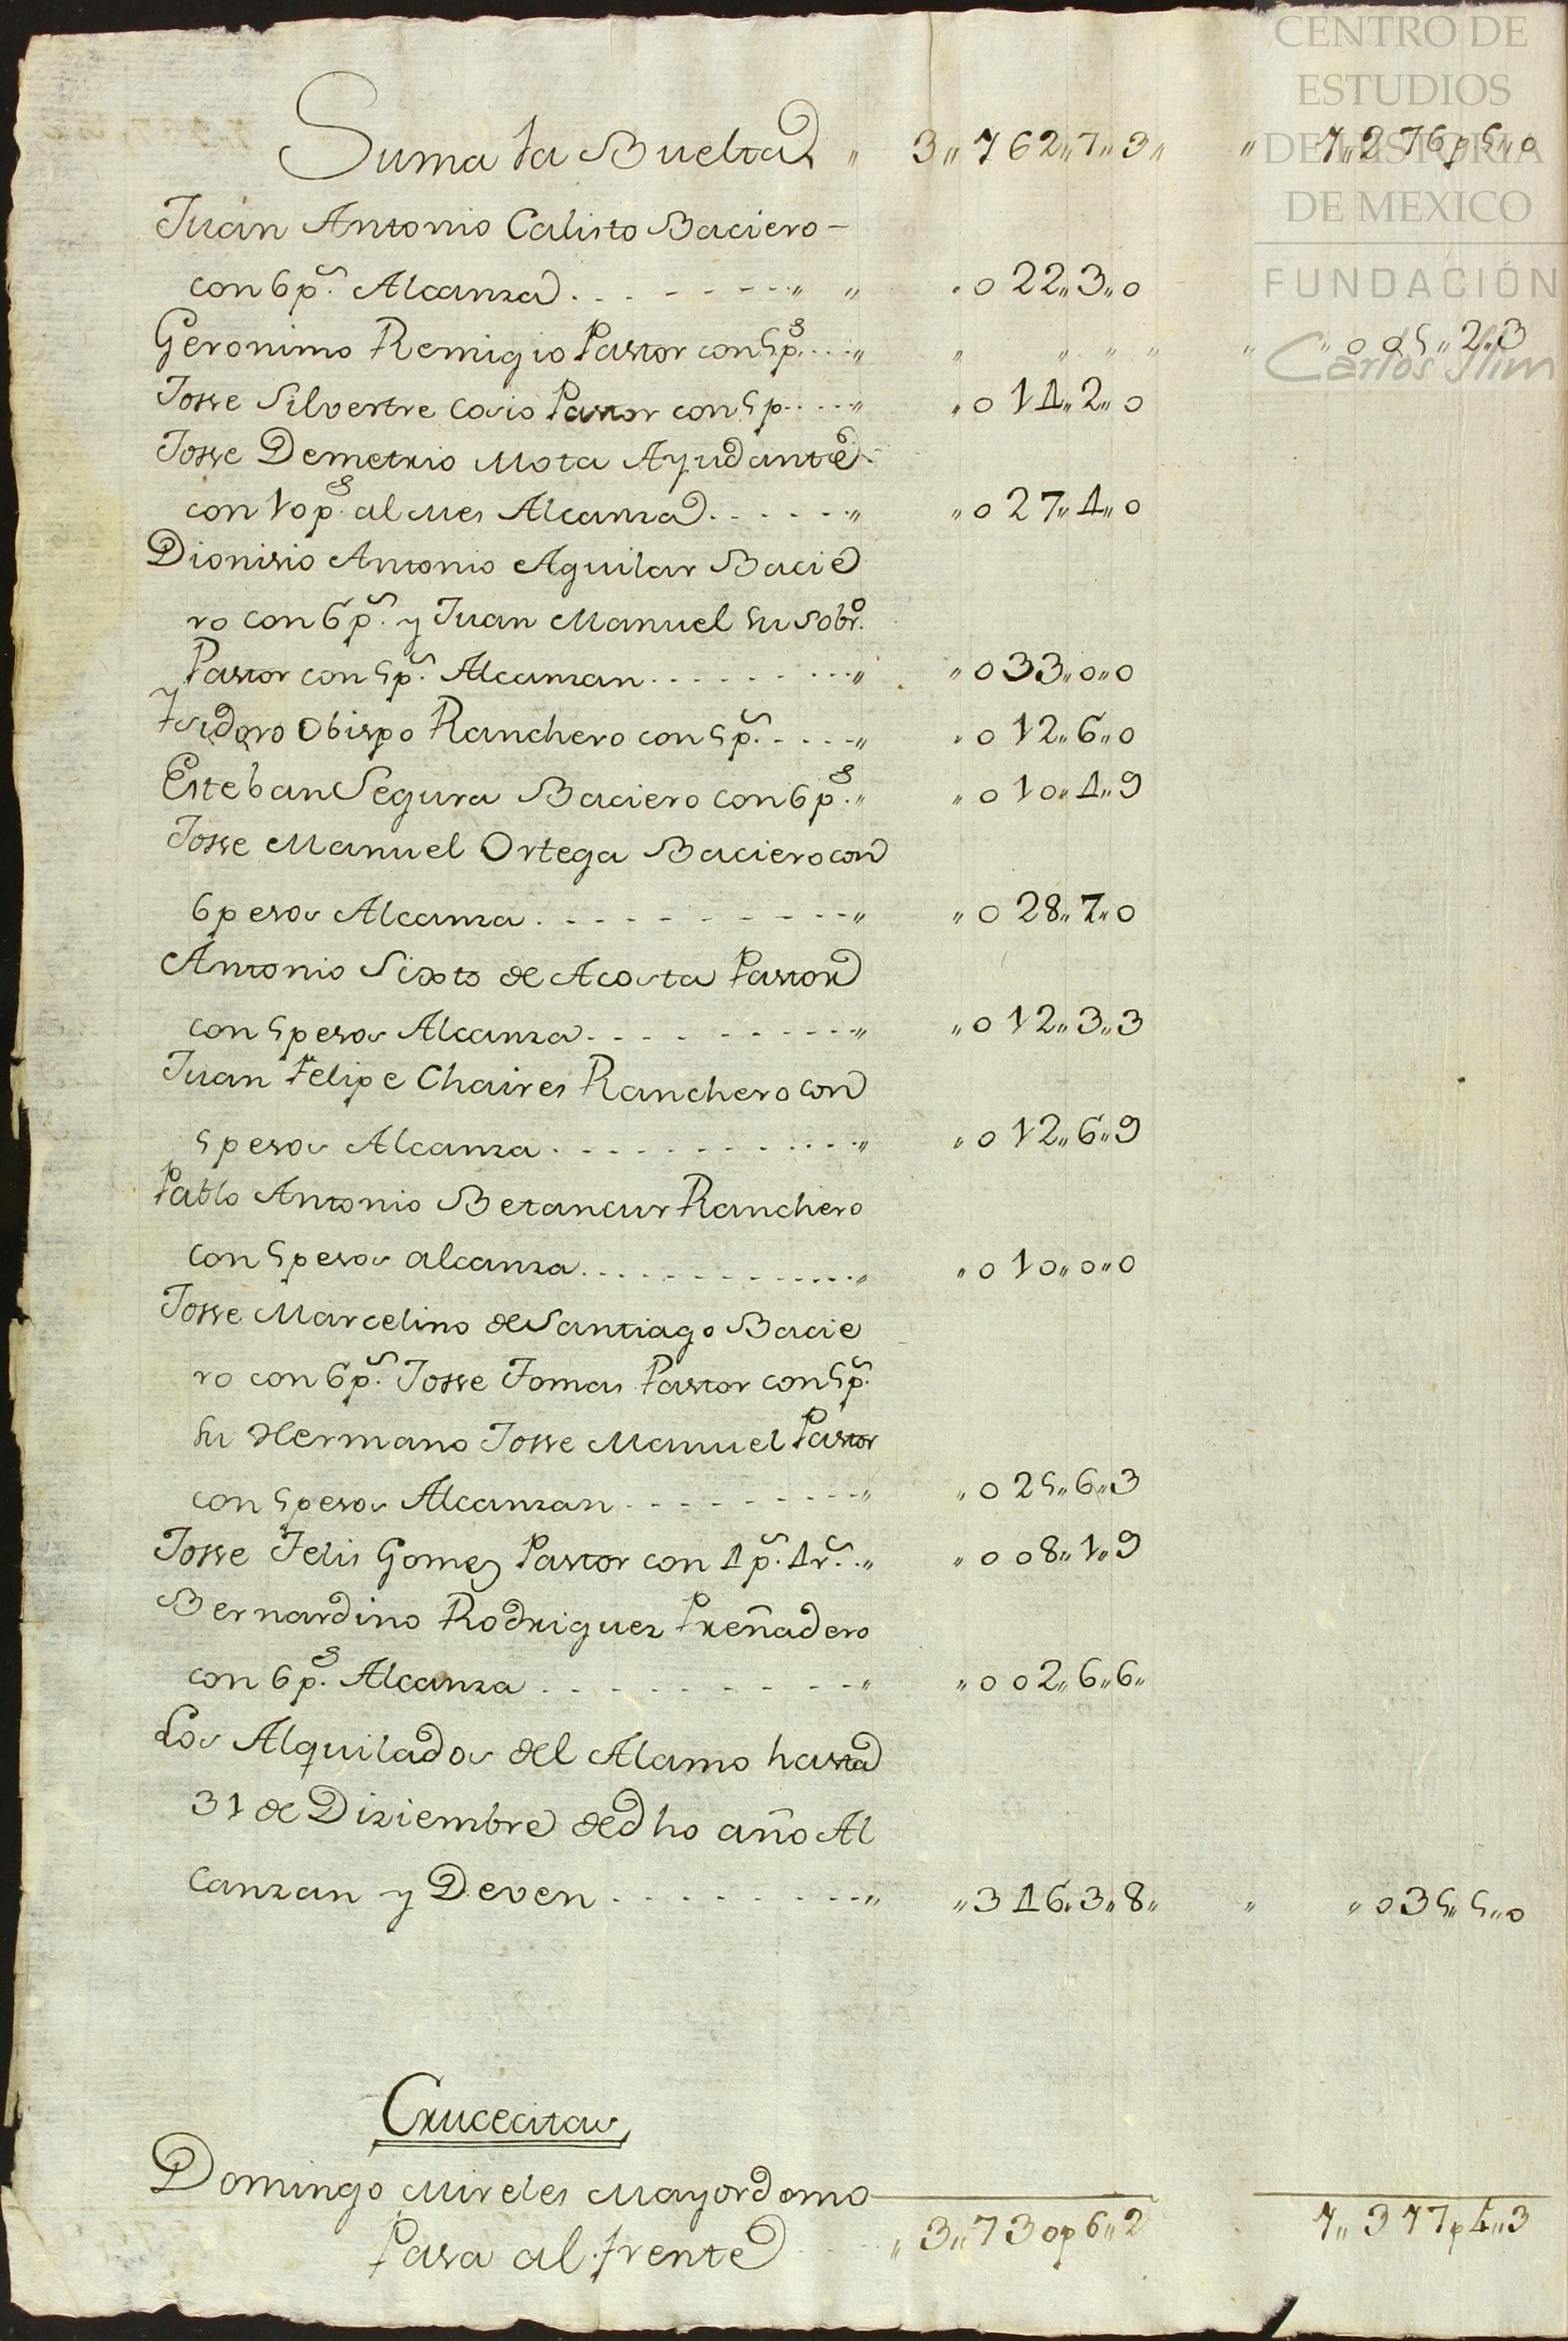 CENTRO DE
ESTUDIOS
DE HISTORIA
DE MEXICO
FUNDACIÓN
Carlos Slim
Suma la Buelta „ 3„762„7„3„ „ 7„276p5„0
Juan Antonio Calisto Baciero -
con 6p.s Alcanza . . . - - - - „ „ . 022„3„0
Geronimo Remigio Pastor con 5p.s . . . „ „ „ „ „ „ „ 005„2„3
Josse Silvestre Casio Pastor con 5p . . . . „ „ 014„2„0
Josse Demetrio Mota Ayudante
con 10p.s al mes Alcanza . - - - - - „ „ 027„4„0
Dionisio Antonio Aguilar Bacie
ro con 6p.s y Juan Manuel su sobr.o
Pastor con 5p.s Alcanzan . . . . . . . . . „ „ 033„0„0
Isidoro Obispo Ranchero con 5p.s . - - - - „ . 012„6„0
Esteban Segura Baciero con 6p.s „ „ 010„4„9
Josse Manuel Ortega Baciero con
6 pesos Alcanza . - - - - - - - - - „ „ 028„7„0
Antonio Sixto de Acosta Pastor
con 5 pesos Alcanza . - - - - - - - - „ „ 012„3„3
Juan Felipe Chaires Ranchero con
5 pesos Alcanza . . . . . . . . . . . . „ „ 012„6„9
Pablo Antonio Betancur Ranchero
con 5 pesos alcanza . . . . . . . . . . . . . „ „ 010„0„0
Josse Marcelino de Santiago Bacie
ro con 6p.s Josse Tomas Pastor con 5p.s
su Hermano Josse Manuel Pastor
con 5 pesos Alcanzan . - - - - - - - - „ „ 025„6„3
Josse Felis Gomez Pastor con 4p.s 4r.s „ „ 008„1„9
Bernardino Rodriguez Preñadero
con 6p.s Alcanza . - - - - - - - - - „ „ 002„6„6„
Los Alquilados del Alamo hasta
31 de Diziembre de dho año Al
canzan y Deven . - - - - - - - - „ „ 346„3„8„ „ „ 035„5„0
Crucecitas
Domingo Mireles Mayordomo
Pasa al frente - - - „ 3„730p6„2 7„377p4„3